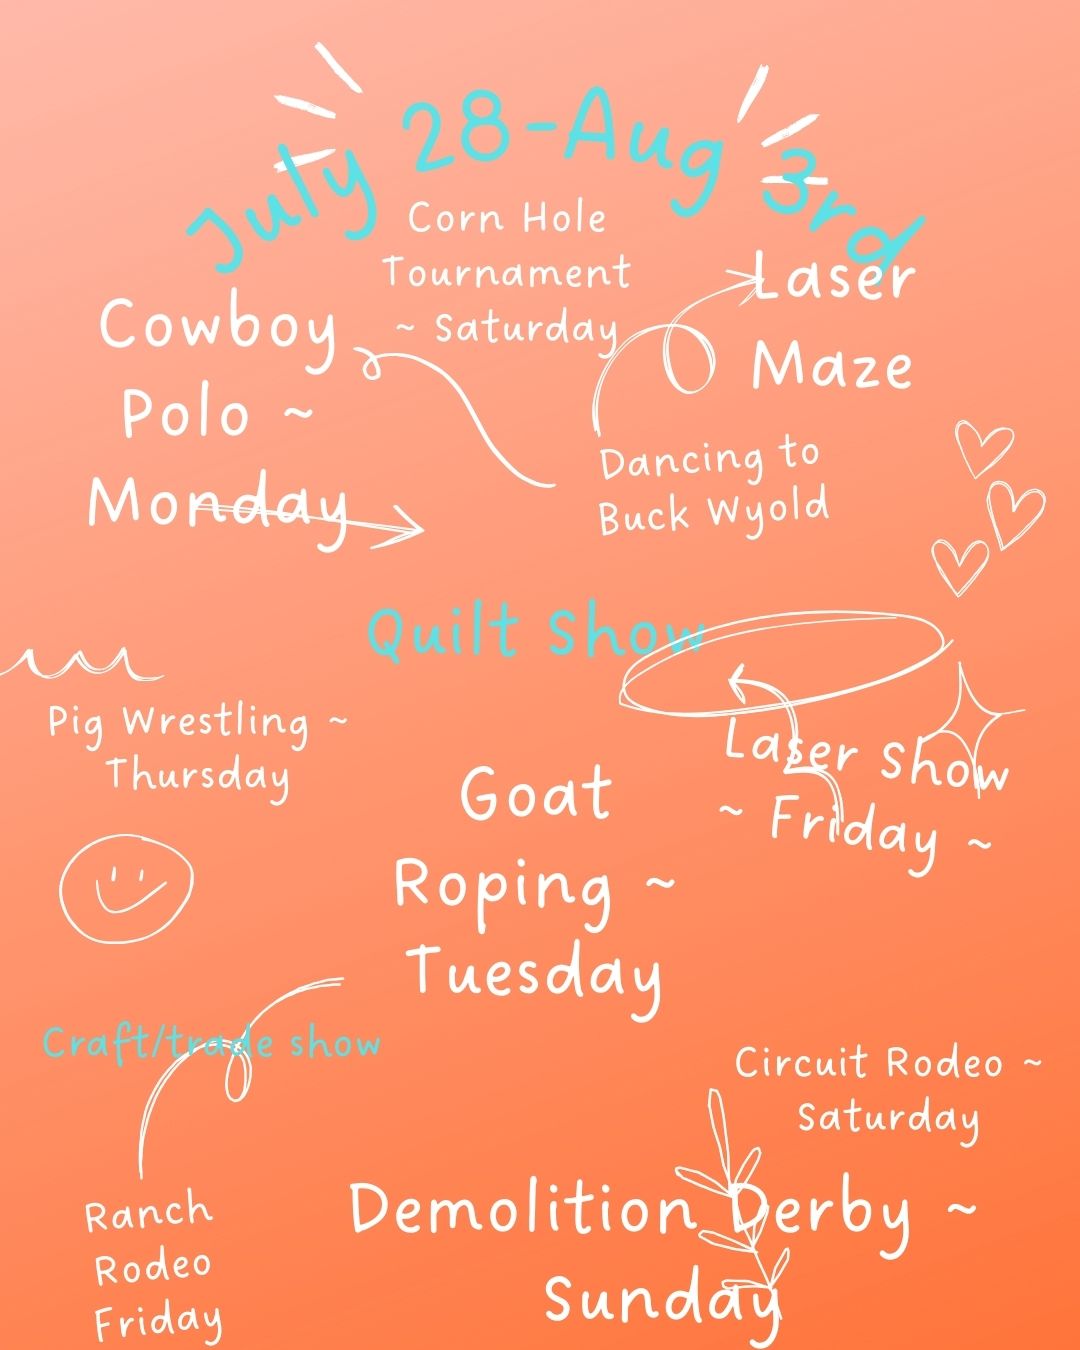 July 28-Aug 3rd
Corn Hole
Tournament
~ Saturday
Laser
Maze
Cowboy
Polo ~
Monday
Dancing to
Buck Wyold
Quilt Show
Pig Wrestling ~
Thursday
Laser Show
~ Friday ~
Goat
Roping ~
Tuesday
Craft/trade show
Circuit Rodeo ~
Saturday
Ranch
Rodeo
Friday
Demolition Derby ~
Sunday